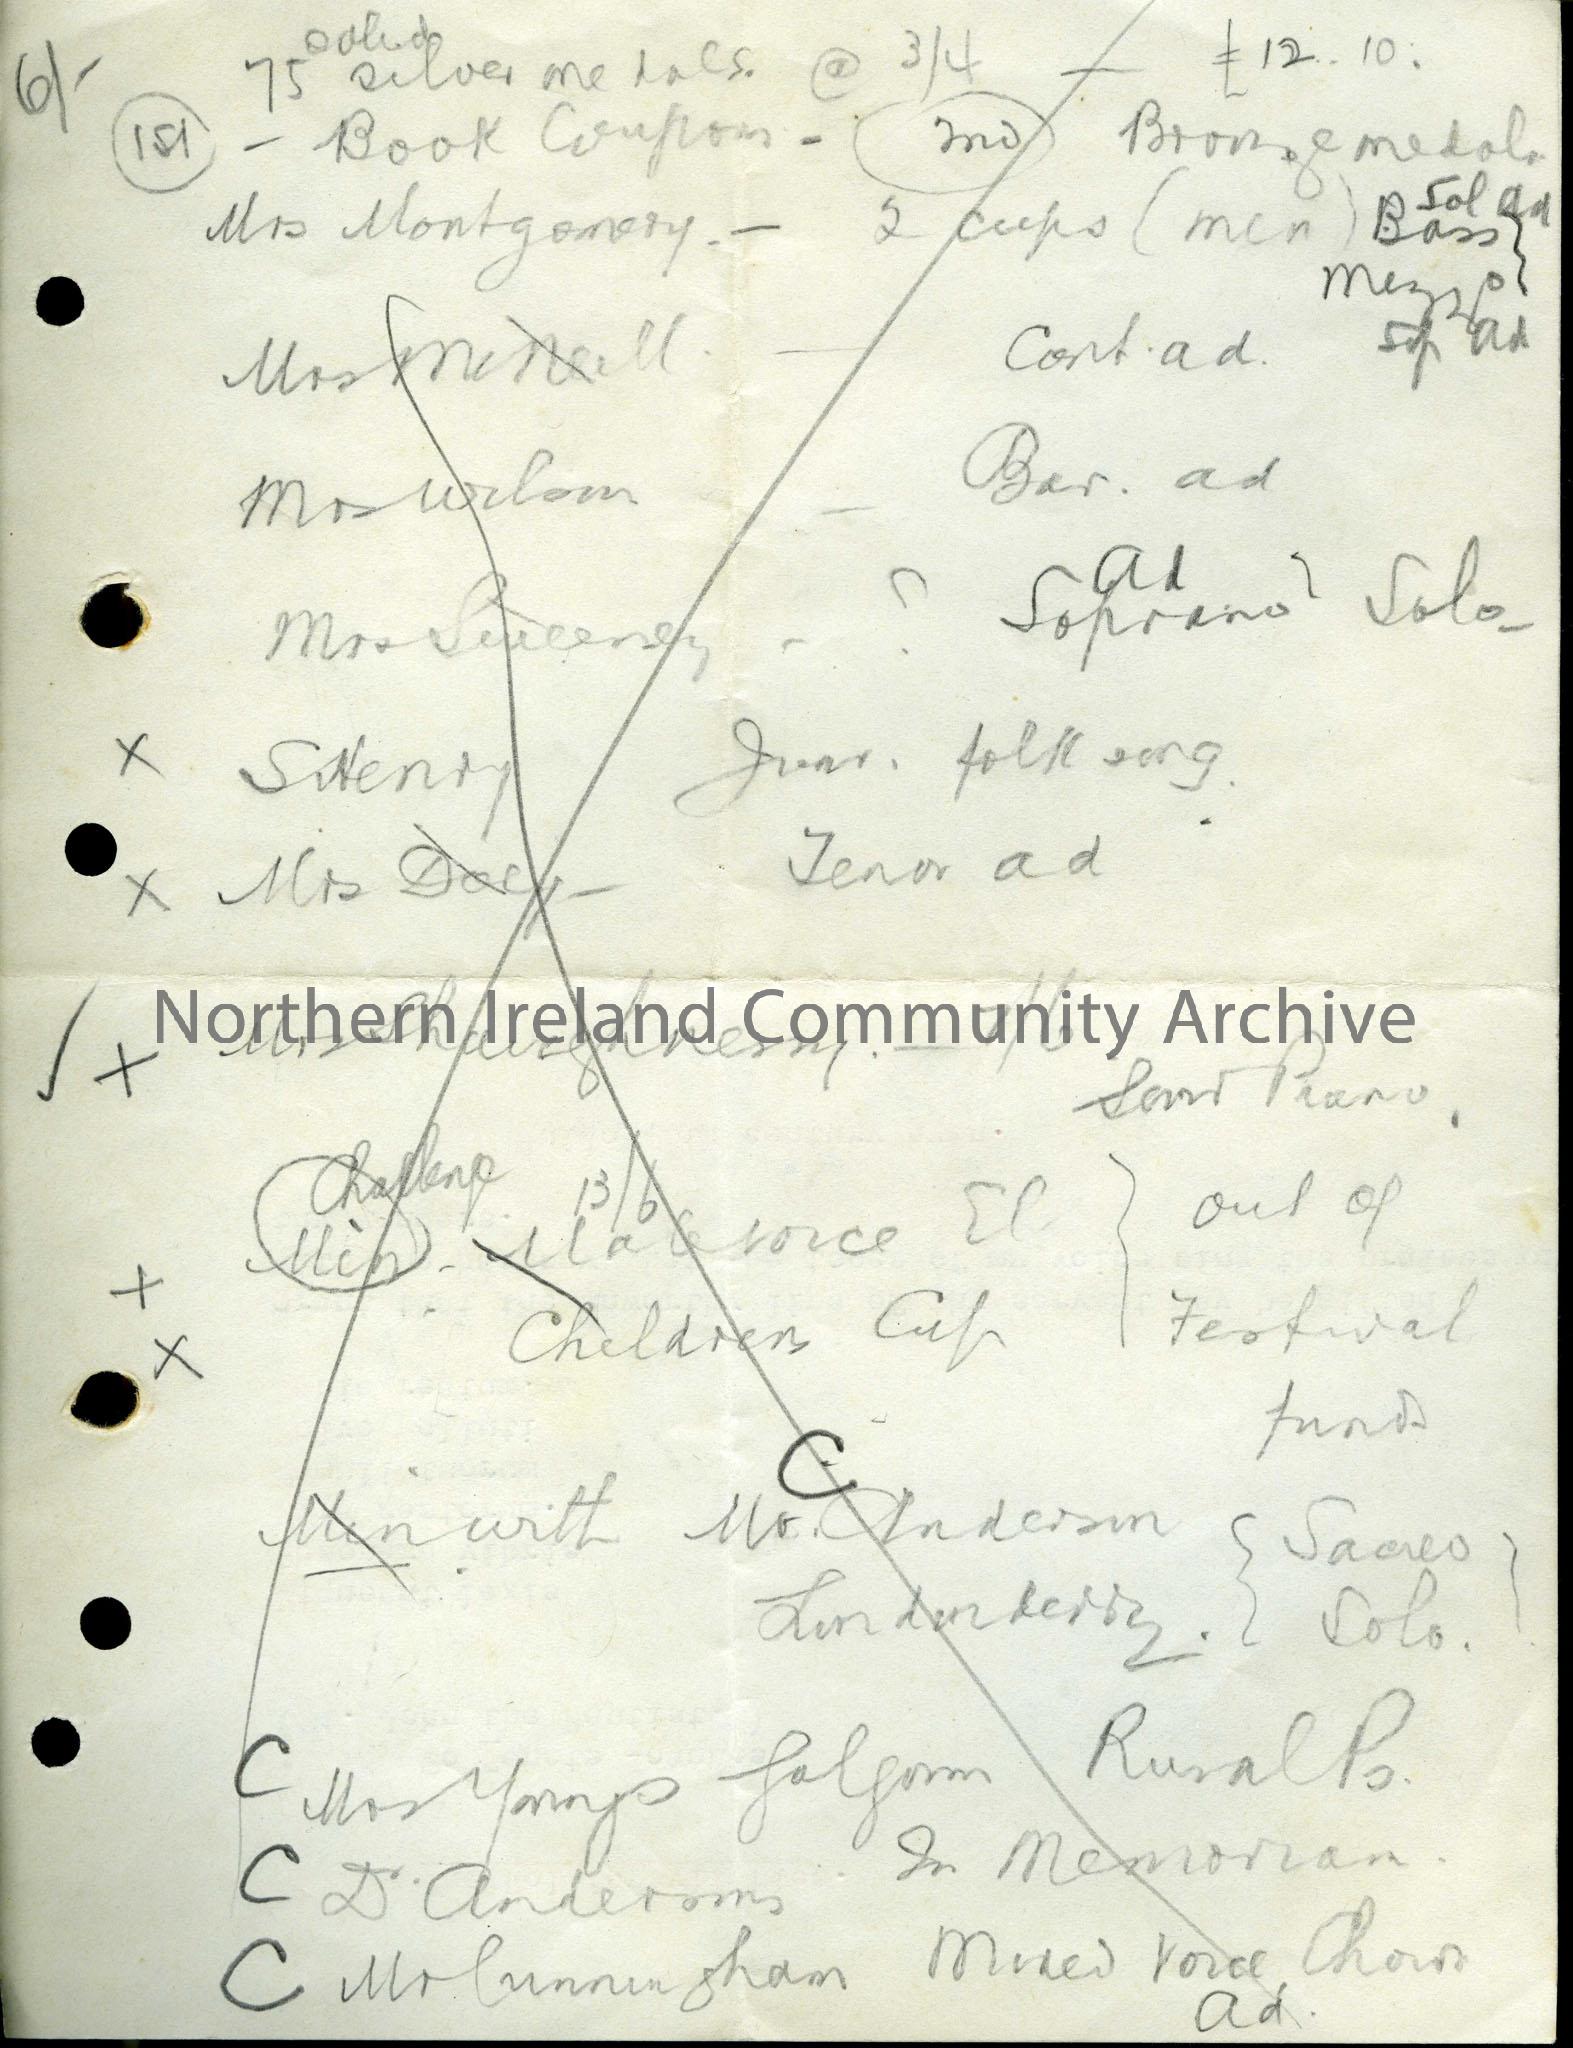 6/-
75 solid silver medals. @ 3/4 — £12.. 10.
1st - Book Coupons - 2nd Bronze medals
Mrs Montgomery. - 2 cups (men) Bass Sol ad
Mezzo
Mrs McNeill. — Cont. ad. Sop ad
Mrs Wilson - Bar. ad
Mrs Sweeney - ? Soprano ad Solo
x S Henry Junr. folk song.
x Mrs - Tenor ad
Northern Ireland Community Archive
✓ x Mrs Shaughnessy. — 7/6
Piano.
Challenge 13/6
+ Min - Male voice El. } out of
x Childrens Cup } Festival
funds
C
Min with Mr. Anderson { Sacred }
Londonderry. { Solo. }
C Mrs Youngs Galgorm Rural Ps.
C Dr. Andersons In Memoriam.
C Mr Cunningham Mixed Voice Choir
ad.